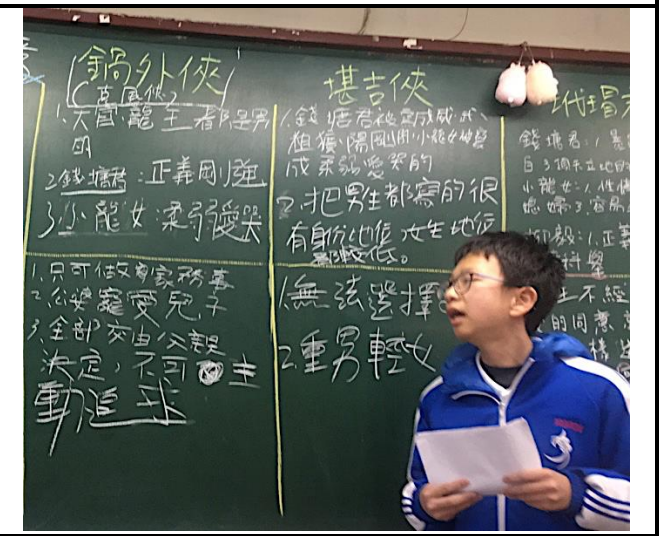 鍋外俠
1.大官、龍王都是男
的
2.錢塘君:正義剛強
3.小龍女:柔弱愛哭
1.只可做家務事
2.公婆寵愛兒子
3.全部交由父親
決定,不可主
動追求
堪吉俠
1.錢塘君被寫成威武、
粗獷、陽剛,小龍女被寫
成柔弱愛哭的
2.把男生都寫的很
有身份地位,女生地位
都較低。
1.無法選擇
2.重男輕女
錢塘君:1.
小龍女:1.
柳毅:1.正義
科舉
不經
的同意